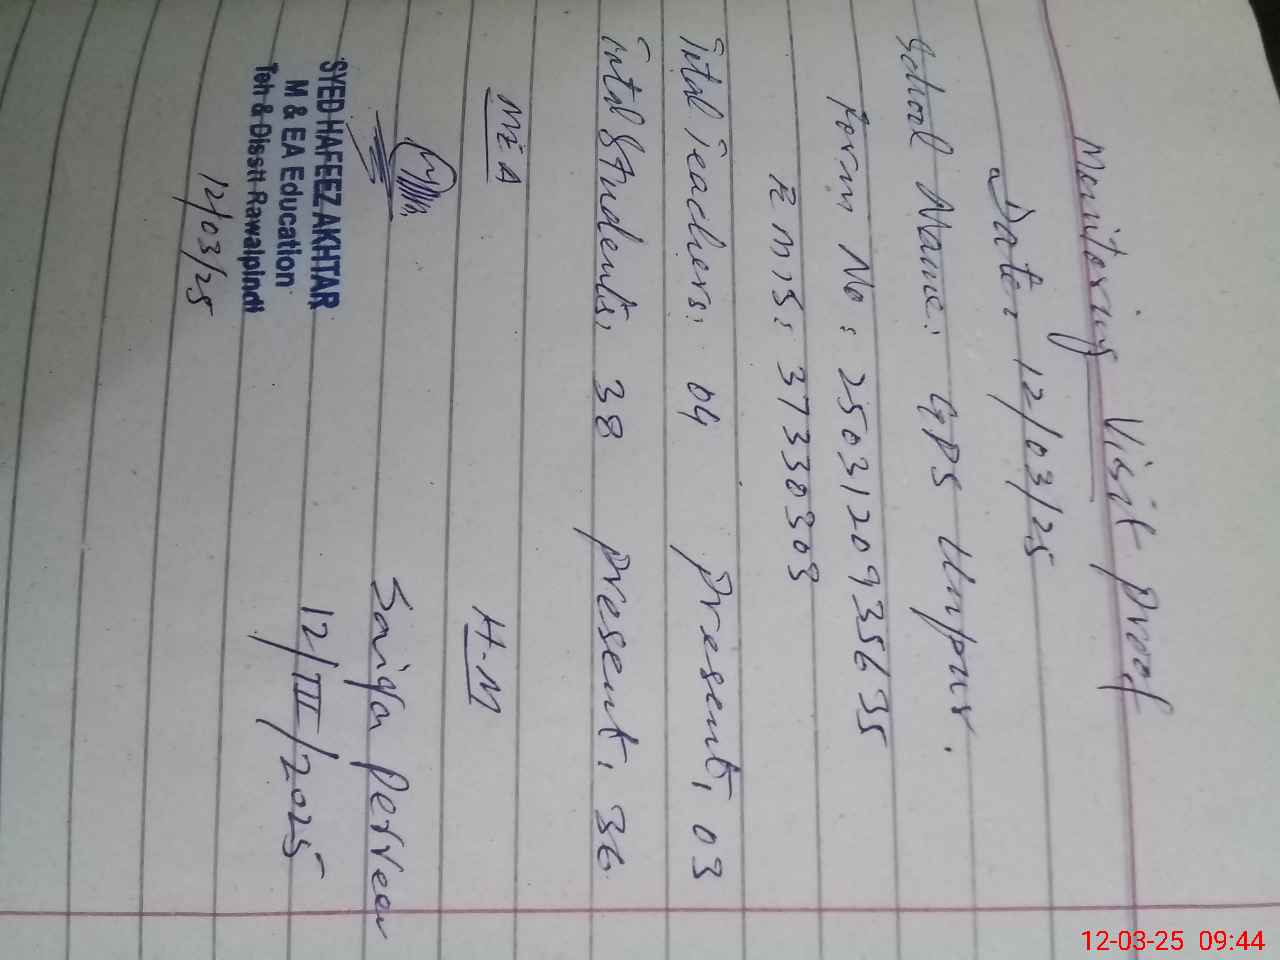 Monitoring Visit Proof
Date: 12/03/25
School Name: GPS Unpur.
Form No: 25031209356635
EMIS: 37330309
Total Teachers: 04 Present: 03
Total Students: 38 Present: 36
MEA H.M
Saiqa Perveen
SYED HAFEEZ AKHTAR 12/III/2025
M & EA Education
Teh & Disstt Rawalpindi
12/03/25
12-03-25 09:44